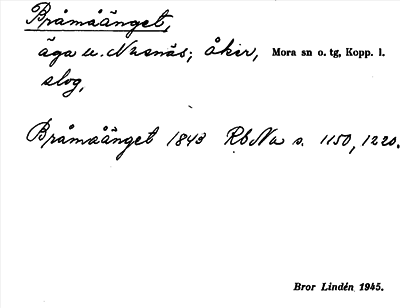 Bråmåänget,
äga u. Nusnäs; åker, Mora sn o. tg, Kopp. l.
slog,
Bråmåänget 1843 RbNu s. 1150, 1220.
Bror Lindén 1945.